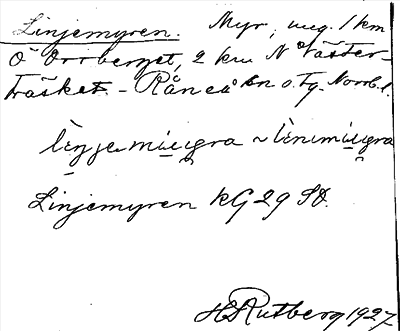 Linjemyren. Myr, ung. 1 km
O Orrberget, 2 km N Väster-
träsket. - Råneå sn o. tg. Norrb. l.
Linjemyren KG 29 SO.
H Rutberg 1927.